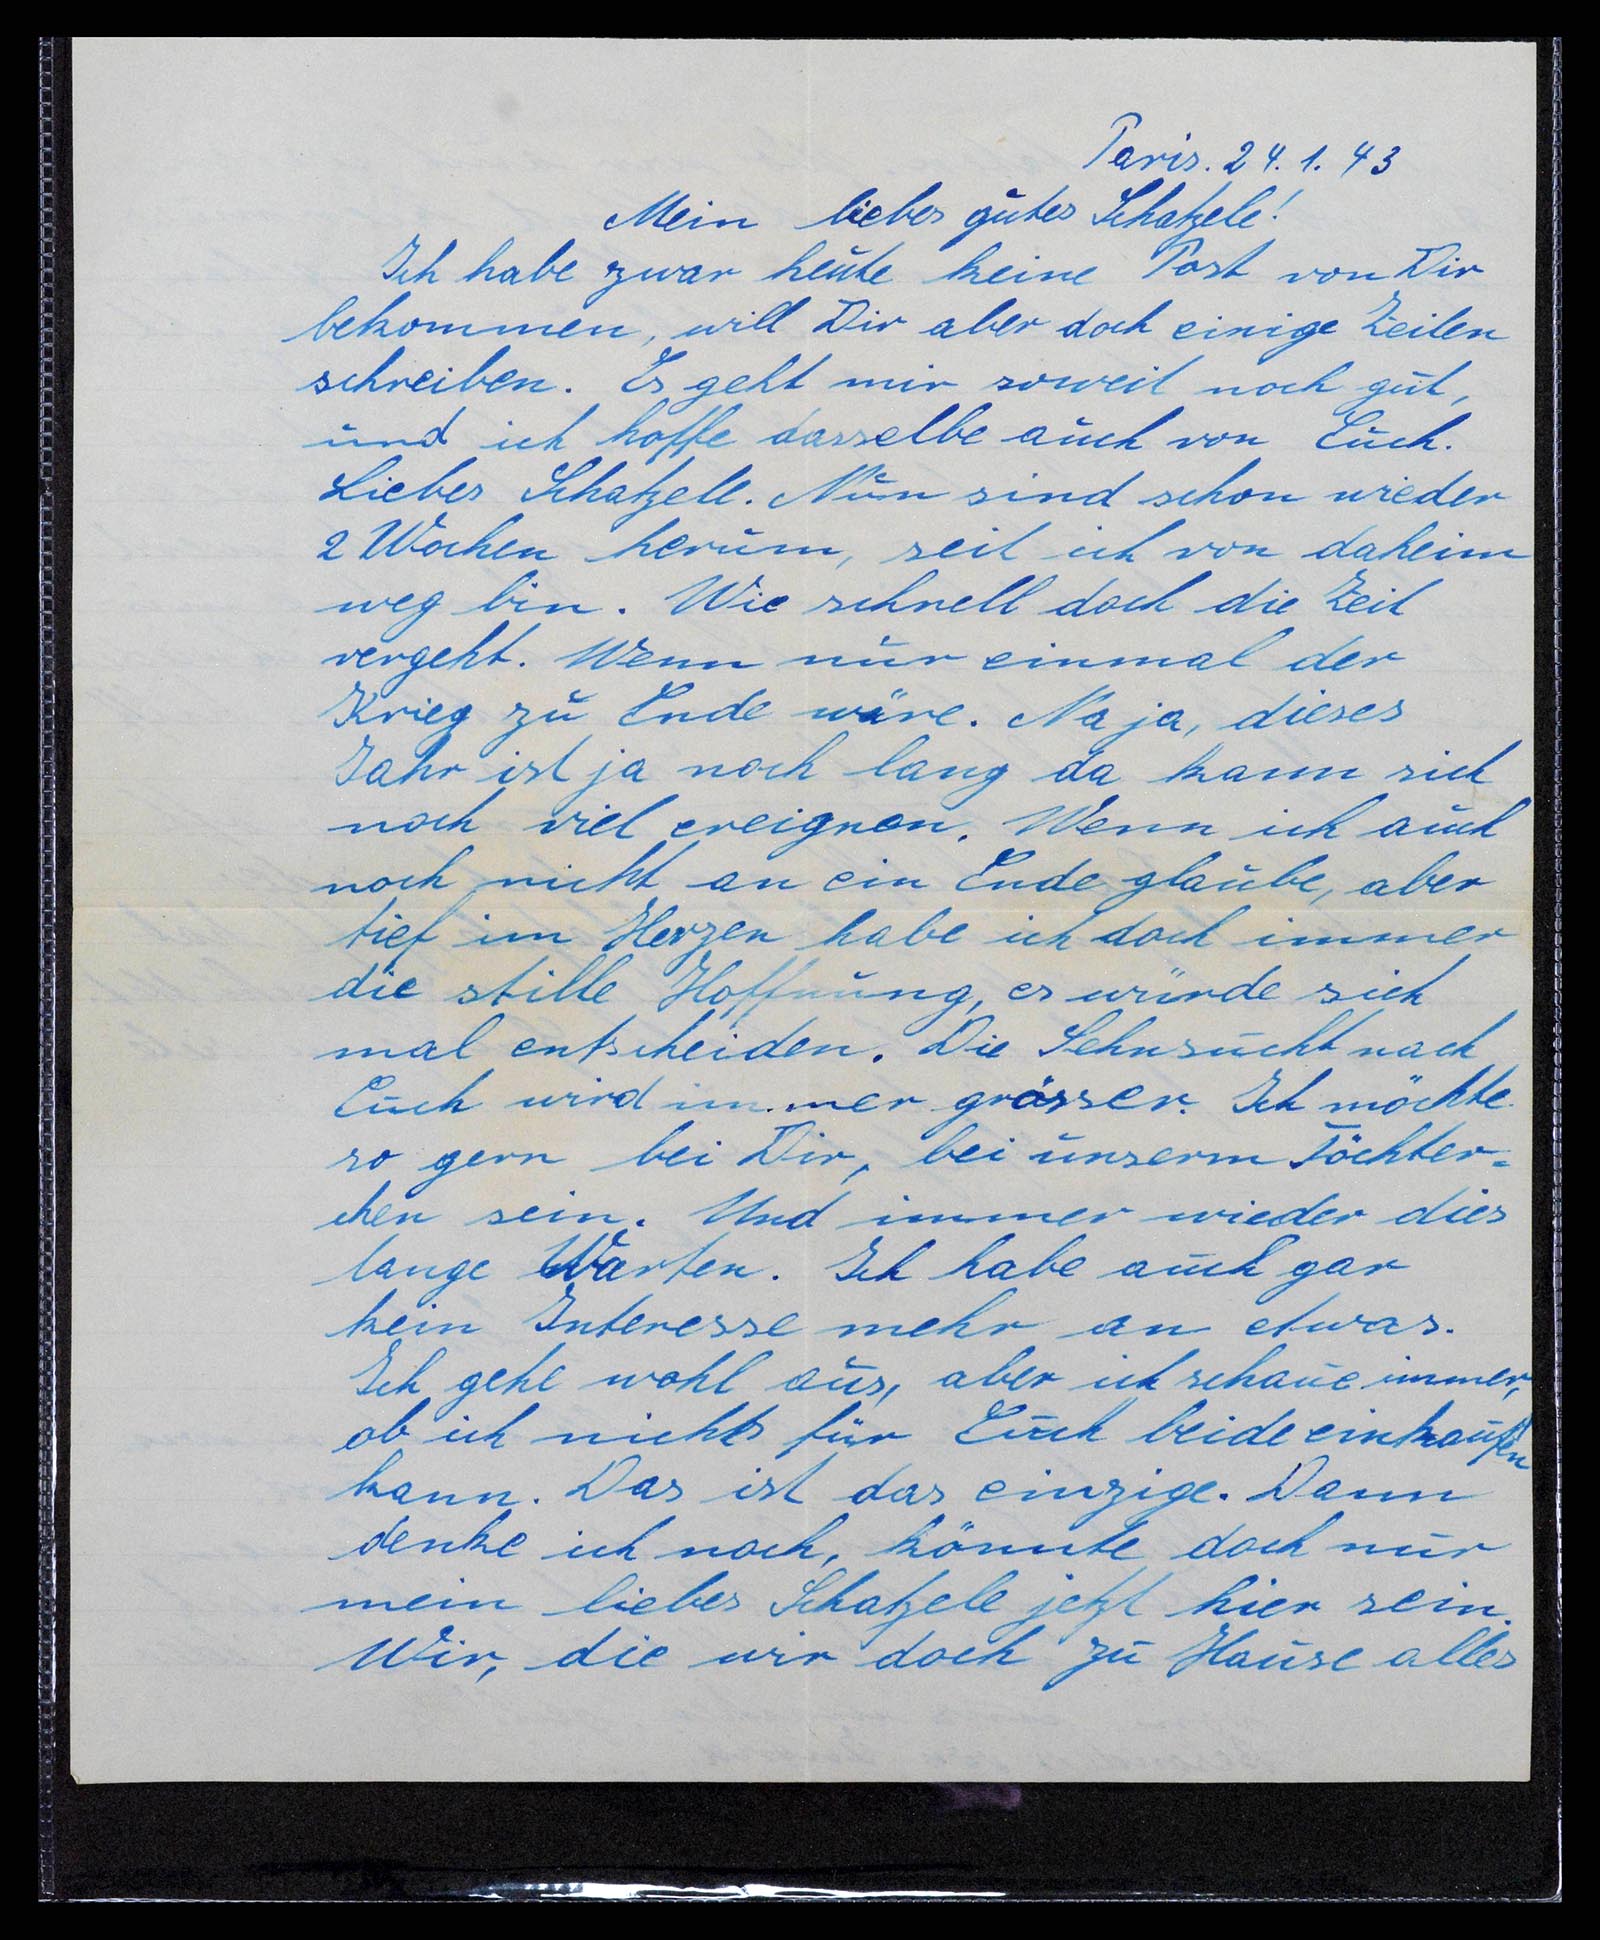 Paris. 24. 1. 43
Mein liebes gutes Schatzele!
Ich habe zwar heute keine Post von Dir
bekommen, will Dir aber doch einige Zeilen
schreiben. Es geht mir soweit noch gut,
und ich hoffe dasselbe auch von Euch.
Liebes Schatzele. Nun sind schon wieder
2 Wochen herum, seit ich von daheim
weg bin. Wie schnell doch die Zeit
vergeht. Wenn nur einmal der
Krieg zu Ende wäre. Na ja, dieses
Jahr ist ja noch lang da kann sich
noch viel ereignen. Wenn ich auch
noch nicht an ein Ende glaube, aber
tief im Herzen habe ich doch immer
die stille Hoffnung, es würde sich
mal entscheiden. Die Sehnsucht nach
Euch wird immer grösser. Ich möchte
so gern bei Dir, bei unserm Töchter=
chen sein. Und immer wieder dies
lange Warten. Ich habe auch gar
kein Interesse mehr an etwas.
Ich gehe wohl aus, aber ich schaue immer,
ob ich nichts für Euch beide einkaufen
kann. Das ist das einzige. Dann
denke ich noch, könnte doch nur
mein liebes Schatzele jetzt hier sein.
Wir, die wir doch zu Hause alles